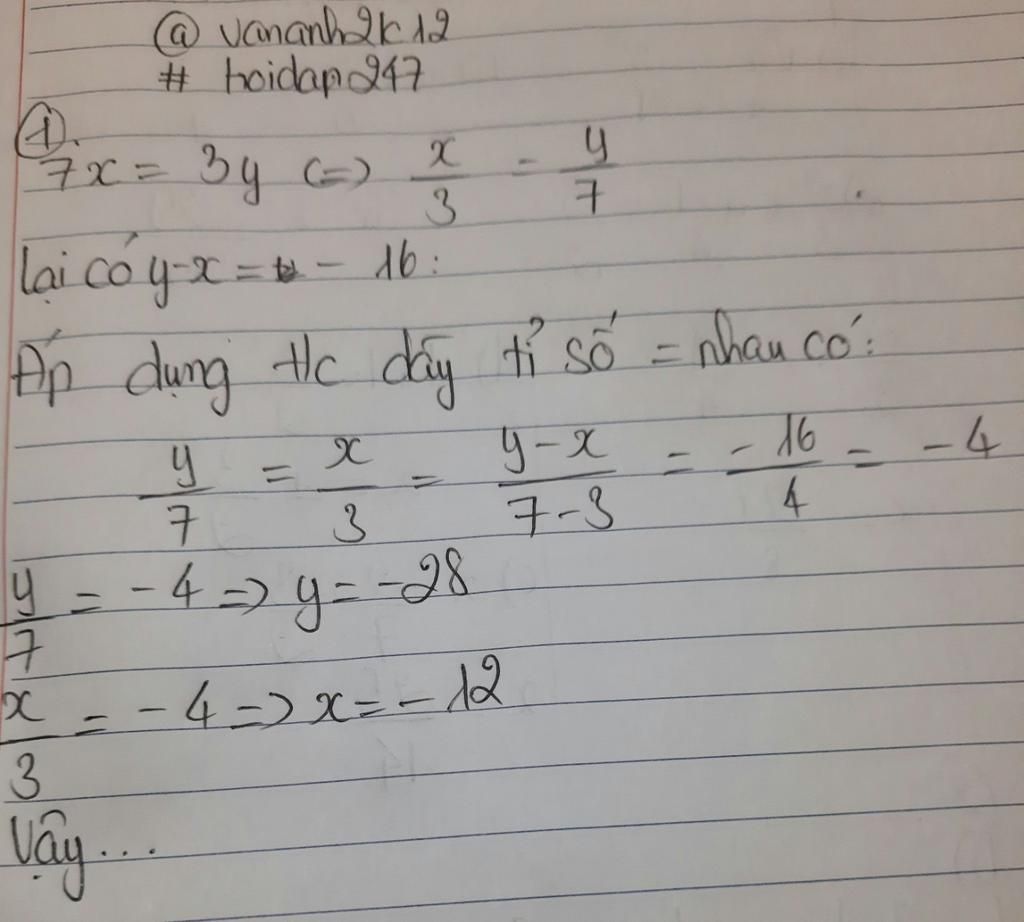 @ vananh2k12
# hoidap247
①.
7x = 3y (=) x/3 = y/7
lại có y-x = - 16 :
Áp dụng t/c dãy tỉ số = nhau có :
y/7 = x/3 = y-x/7-3 = -16/4 = -4
y/7 = -4 => y = -28
x/3 = -4 => x = -12
Vậy...